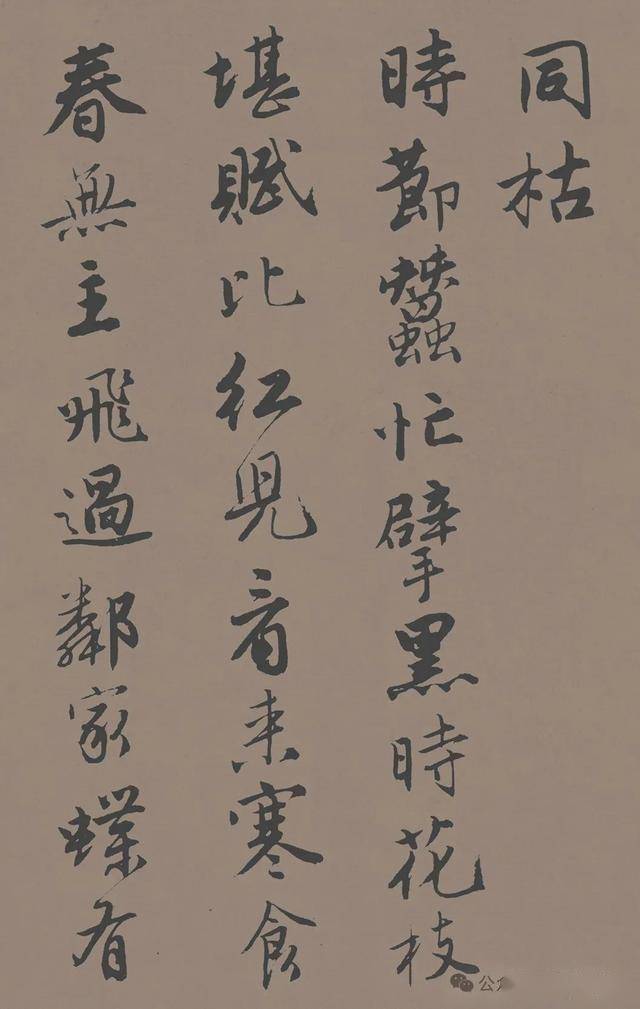 同枯
時節蠶忙擘黑時花枝
堪賦比紅兒看来寒食
春無主飛過鄰家蝶有
公